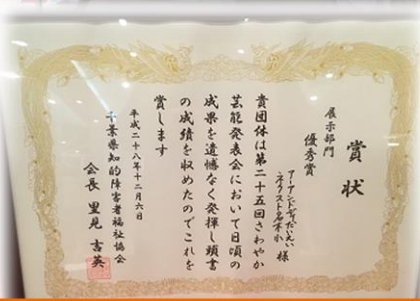 賞状
展示部門
優秀賞
アーアンドディだいえい
ネクスト名木小 様
貴団体は第二十五回さわやか
芸能発表会において日頃の
成果を遺憾なく発揮し頭書
の成績を収めたのでこれを
賞します
平成二十八年十二月六日
千葉県知的障害者福祉協会
会長 里見吉英